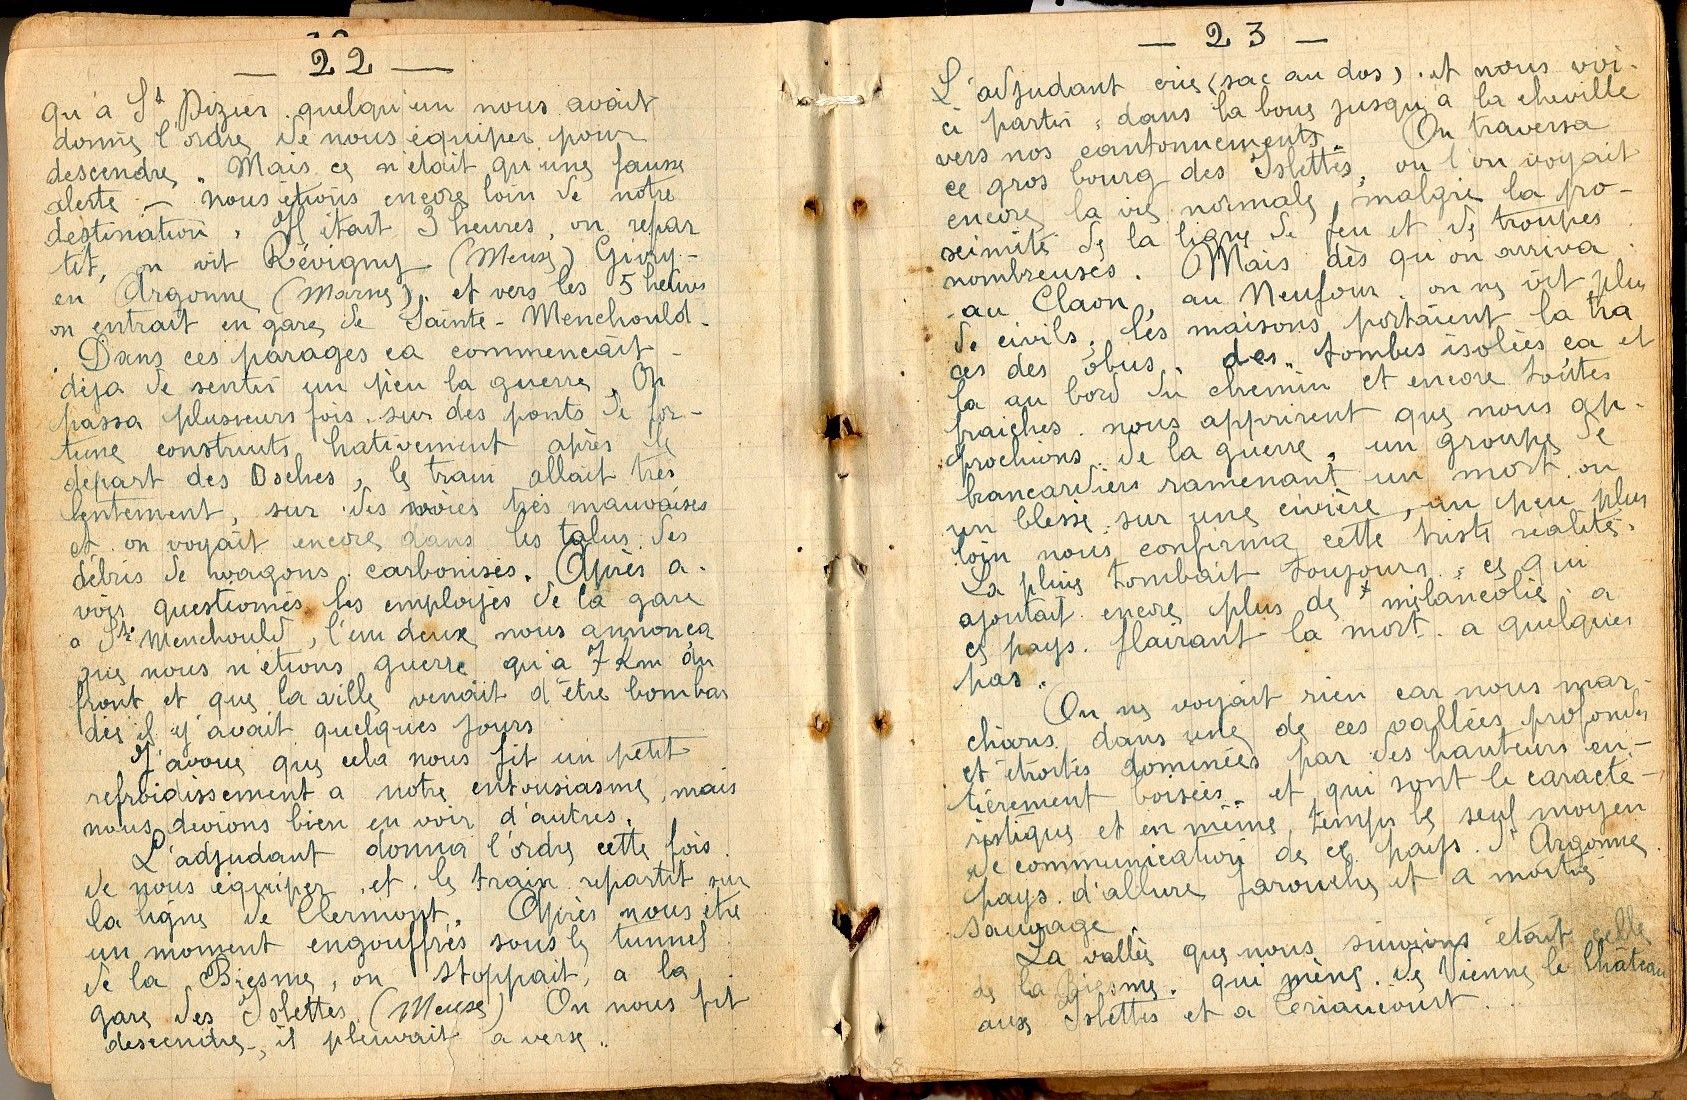 — 22 —
qu'à St Dizier quelqu'un nous avait
donné l'ordre de nous équiper pour
descendre. Mais ce n'était qu'une fausse
alerte — nous étions encore loin de notre
destination. Il était 3 heures, on repar
tit, on vit Révigny (Meuse) Givry-
en Argonne (Marne). et vers les 5 heures
on entrait en gare de Sainte-Menehould.
Dans ces parages ca commencait
déja de sentir un peu la guerre. On
passa plusieurs fois sur des ponts de for-
tune construits hativement après le
départ des Boches, le train allait très
lentement, sur des voies très mauvaises
et on voyait encore dans les talus des
débris de wagons carbonisés. Après a-
voir questionnés les employés de la gare
a Ste Menehould, l'un deux nous annonca
que nous n'étions guerre qu'a 7 Km du
front et que la ville venait d'être bombar
dée il y'avait quelques jours
J'avoue que cela nous fit un petit
refroidissement a notre entousiasme, mais
nous devions bien en voir d'autres.
L'adjudant donna l'ordre cette fois
de nous équiper et le train repartit sur
la ligne de Clermont. Après nous être
un moment engouffrés sous le tunnel
de la Biesme, on stoppait, a la
gare des Islettes (Meuse) On nous fit
descendre, il pleuvait a verse.
— 23 —
L'adjudant crie (sac au dos). et nous voi-
ci partir, dans la boue jusqu'à la cheville
vers nos cantonnements. On traversa
ce gros bourg des Islettes, ou l'on voyait
encore la vie normale, malgré la pro-
seimité de la ligne de feu et de troupes
nombreuses. Mais dès qu'on arriva
au Claon, au Neufour on ne vit plus
de civils, les maisons portaient la tra
ces des obus, des tombes isolées ca et
la au bord du chemin et encore toutes
fraiches nous apprirent que nous ap-
prochions de la guerre, un groupe de
brancardiers ramenant un mort ou
un blessé sur une civière, un peu plus
loin nous confirma cette triste réalité.
La pluie tombait toujours, ce qui
ajoutait encore plus de mélancolie a
ce pays flairant la mort a quelques
pas.
On ne voyait rien car nous mar-
chions dans une de ces vallées profondes
et étroites dominées par des hauteurs en-
tièrement boisées. et qui sont le caracté-
ristique et en même temps le seul moyen
de communication de ce pays d'Argonne
pays d'allure farouche et a moitié
sauvage.
La vallée que nous suivions était celle
de la Biesme. qui mène de Vienne le Château
aux Islettes et a